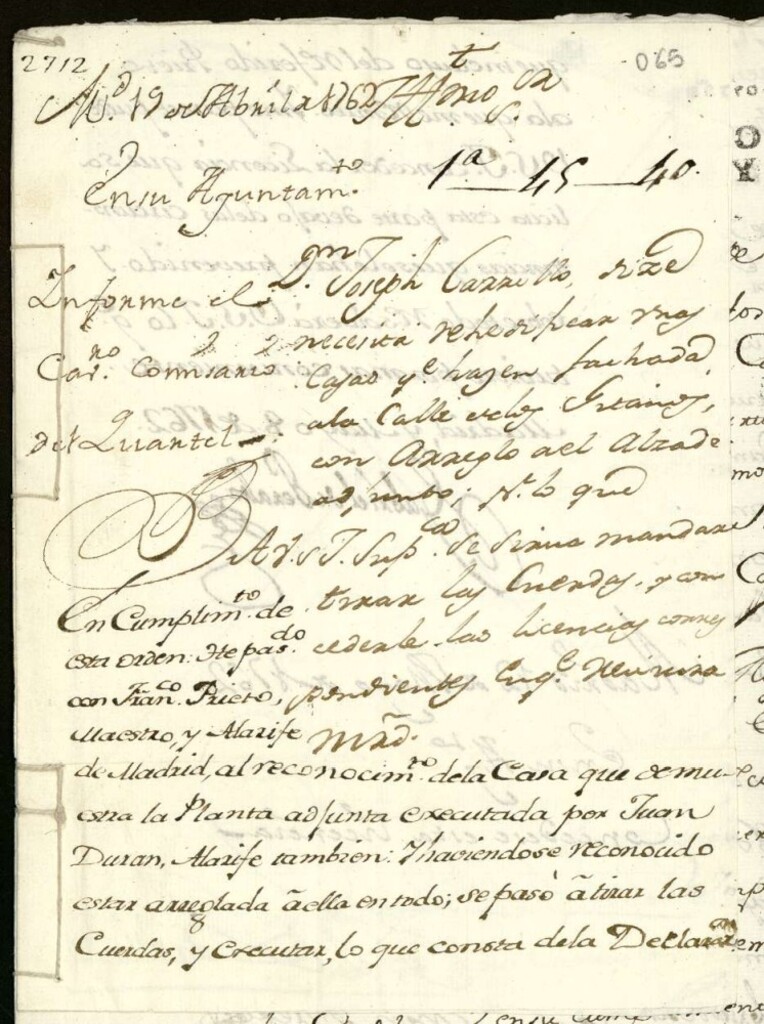 2712
065
M.d 19 de Abril de 1762
En su Ayuntam.to
1.a 45 40
Informe el
Cav.no Comisario
del Quartel
D.n Joseph Carrillo, dize
necesita rehedificar unas
Casas q.e hazen fachada
ala Calle de los
con Arreglo del Alzado
adjunto; P.r lo que
A V.S.I. Sup.co se sirva mandar
tirar las Cuerdas, y con
cederle las licencias corres
pendientes en q.e recivira
mrd.
En Cumplim.to de
esta orden: He pas.do
con Fran.co Prieto,
Maestro, y Alarife
de Madrid, al reconocim.to dela Casa que demu-
estra la Planta adjunta executada por Juan
Duran, Alarife tambien: Y haviendose reconocido
estar arreglada à ella en todo; se pasò à tirar las
Cuerdas, y executar, lo que consta dela Declaraz.on